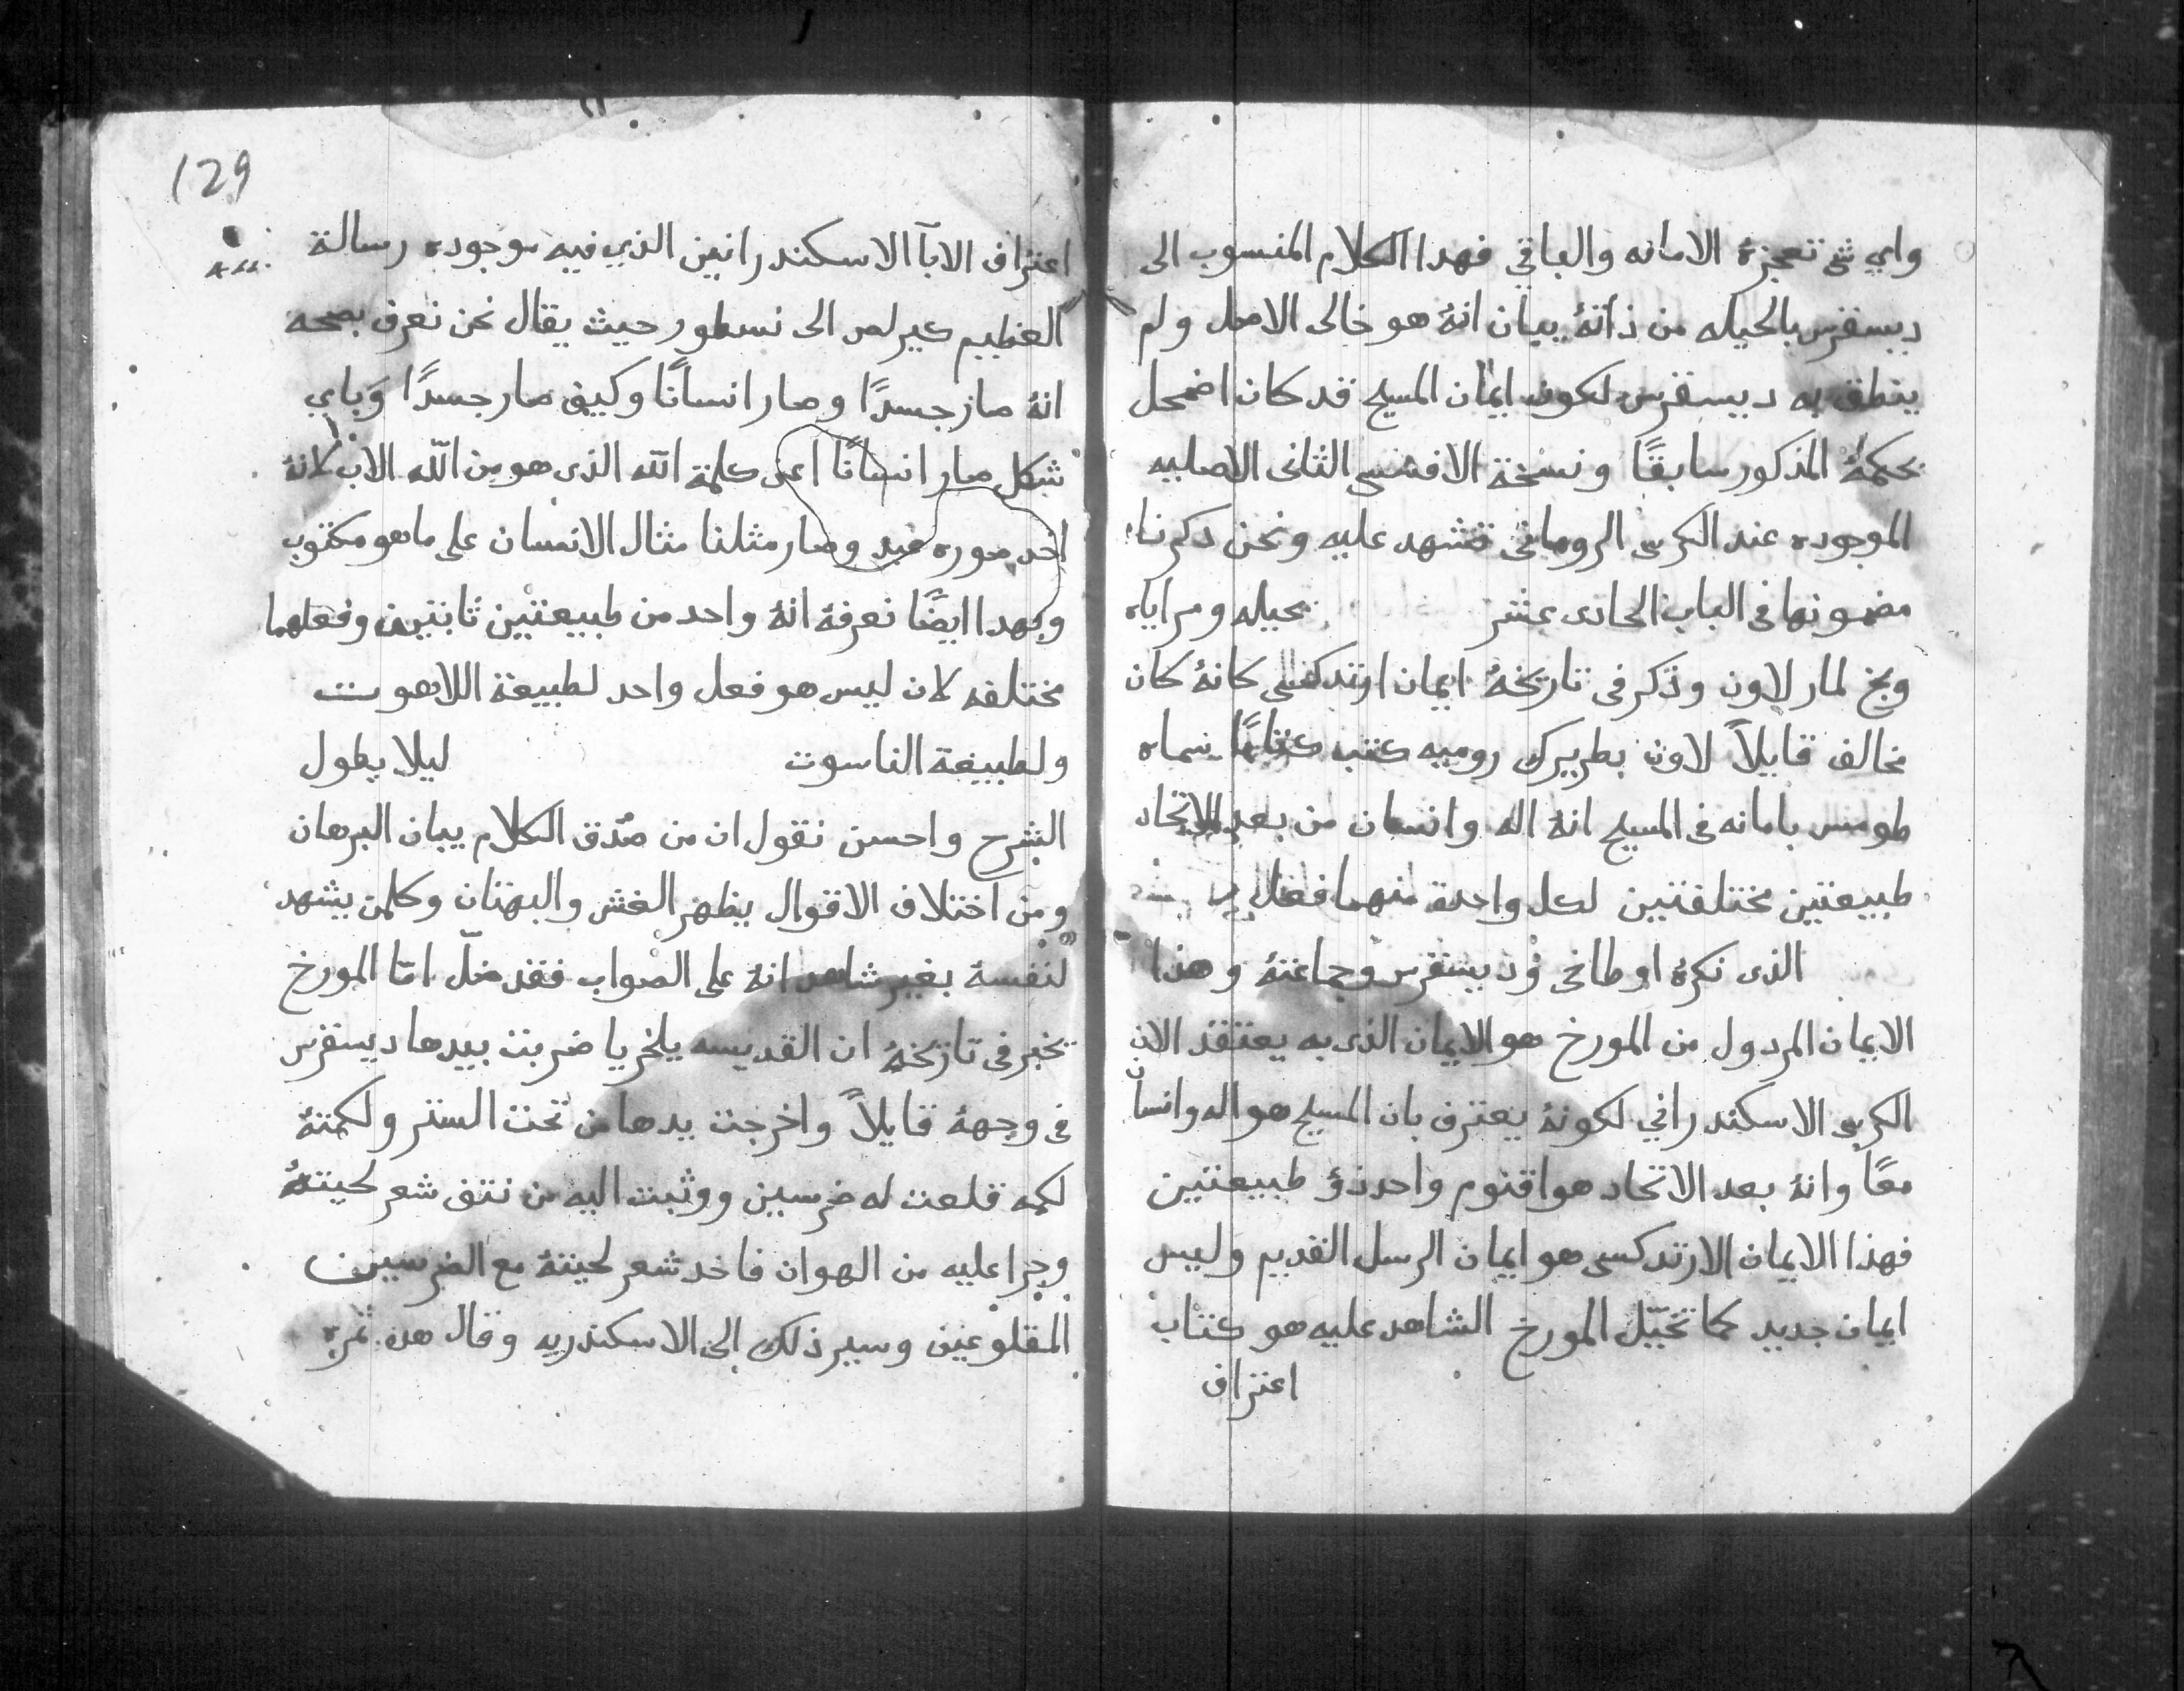 واي شي تعجزهُ الامانه والباقي فهدا الكلام المنسوب الى
ديسقرس بالحيله من ذاتهُ يبيان انهُ هو خالى الاصل ولم
ينطق به ديسقرس لكون ايمان المسيح قد كان اضمحل
بحكمهُ المذكور سابقًا ونسخة الافسسى الثانى الاصليه
الموجوده عند الكرسى الرومانى تشهد عليه ونحن دكرنا
مضمونها فى الباب الحادى عشر بحيله ومراياه
وبخ لمار لاون وذكر فى تاريخهُ ايمان ارتدكسى كانهُ كان
مخالف قايلاً لاون بطريرك روميه كتب كتابًا سماه
طومس بامانه فى المسيح انهُ اله وانسان من بعد الاتحاد
طبيعتين مختلفتين لكل واحدة منهما فعل
الذى نكرهُ اوطاخى وديسقرس وجماعتهُ وهذا
الايمان المردول من المورخ هو الايمان الذى به يعتقد الان
الكرسى الاسكندراني لكونهُ يعترف بان المسيح هو اله وانسان
معًا وانهُ بعد الاتحاد هو اقنوم واحد ذو طبيعتين
فهذا الايمان الارتدكسى هو ايمان الرسل القديم وليس
ايمان جديد كما تخيّل المورخ الشاهد عليه هو كتاب
اعتراف
129
اعتراف الابآ الاسكندرانيين الذي فيه موجوده رسالة
العظيم كيرلص الى نسطور حيث يقال نحن نعرف بصحه
انهُ صار جسدًا وصار انسانًا وكيف صار جسدًا وَباي
شكل صار انسانًا اعنى كلمة الله الذى هو من الله الاب لانهُ
اخد صوره عبد وصار مثلنا مثال الانسان على ما هو مكتوب
وبهدا ايضًا نعرفهُ انهُ واحد من طبيعتين ثابتين وفعلهما
مختلفه لان ليس هو فعل واحد لطبيعة اللاهوت
ولطبيعة الناسوت ليلا يطول
الشرح واحسن نقول ان من صدق الكلام يبان البرهان
ومن اختلاف الاقوال يظهر الغش والبهتان وكلمن يشهد
لنفسهُ بغير شاهد انهُ على الصواب فقد ضلّ امّا المورخ
يخبر فى تاريخهُ ان القديسه يلخريا ضربت بيدها ديسقرس
فى وجههُ قايلاً واخرجت يدها من تحت الستر ولكمتهُ
لكمه قلعت له ضرسين ووثبت اليه من نتف شعر لحيتهُ
وجرا عليه من الهوان فاخد شعر لحيتهُ مع الضرسين
المقلوعين وسير ذلك الى الاسكندريه وقال هده ثمره